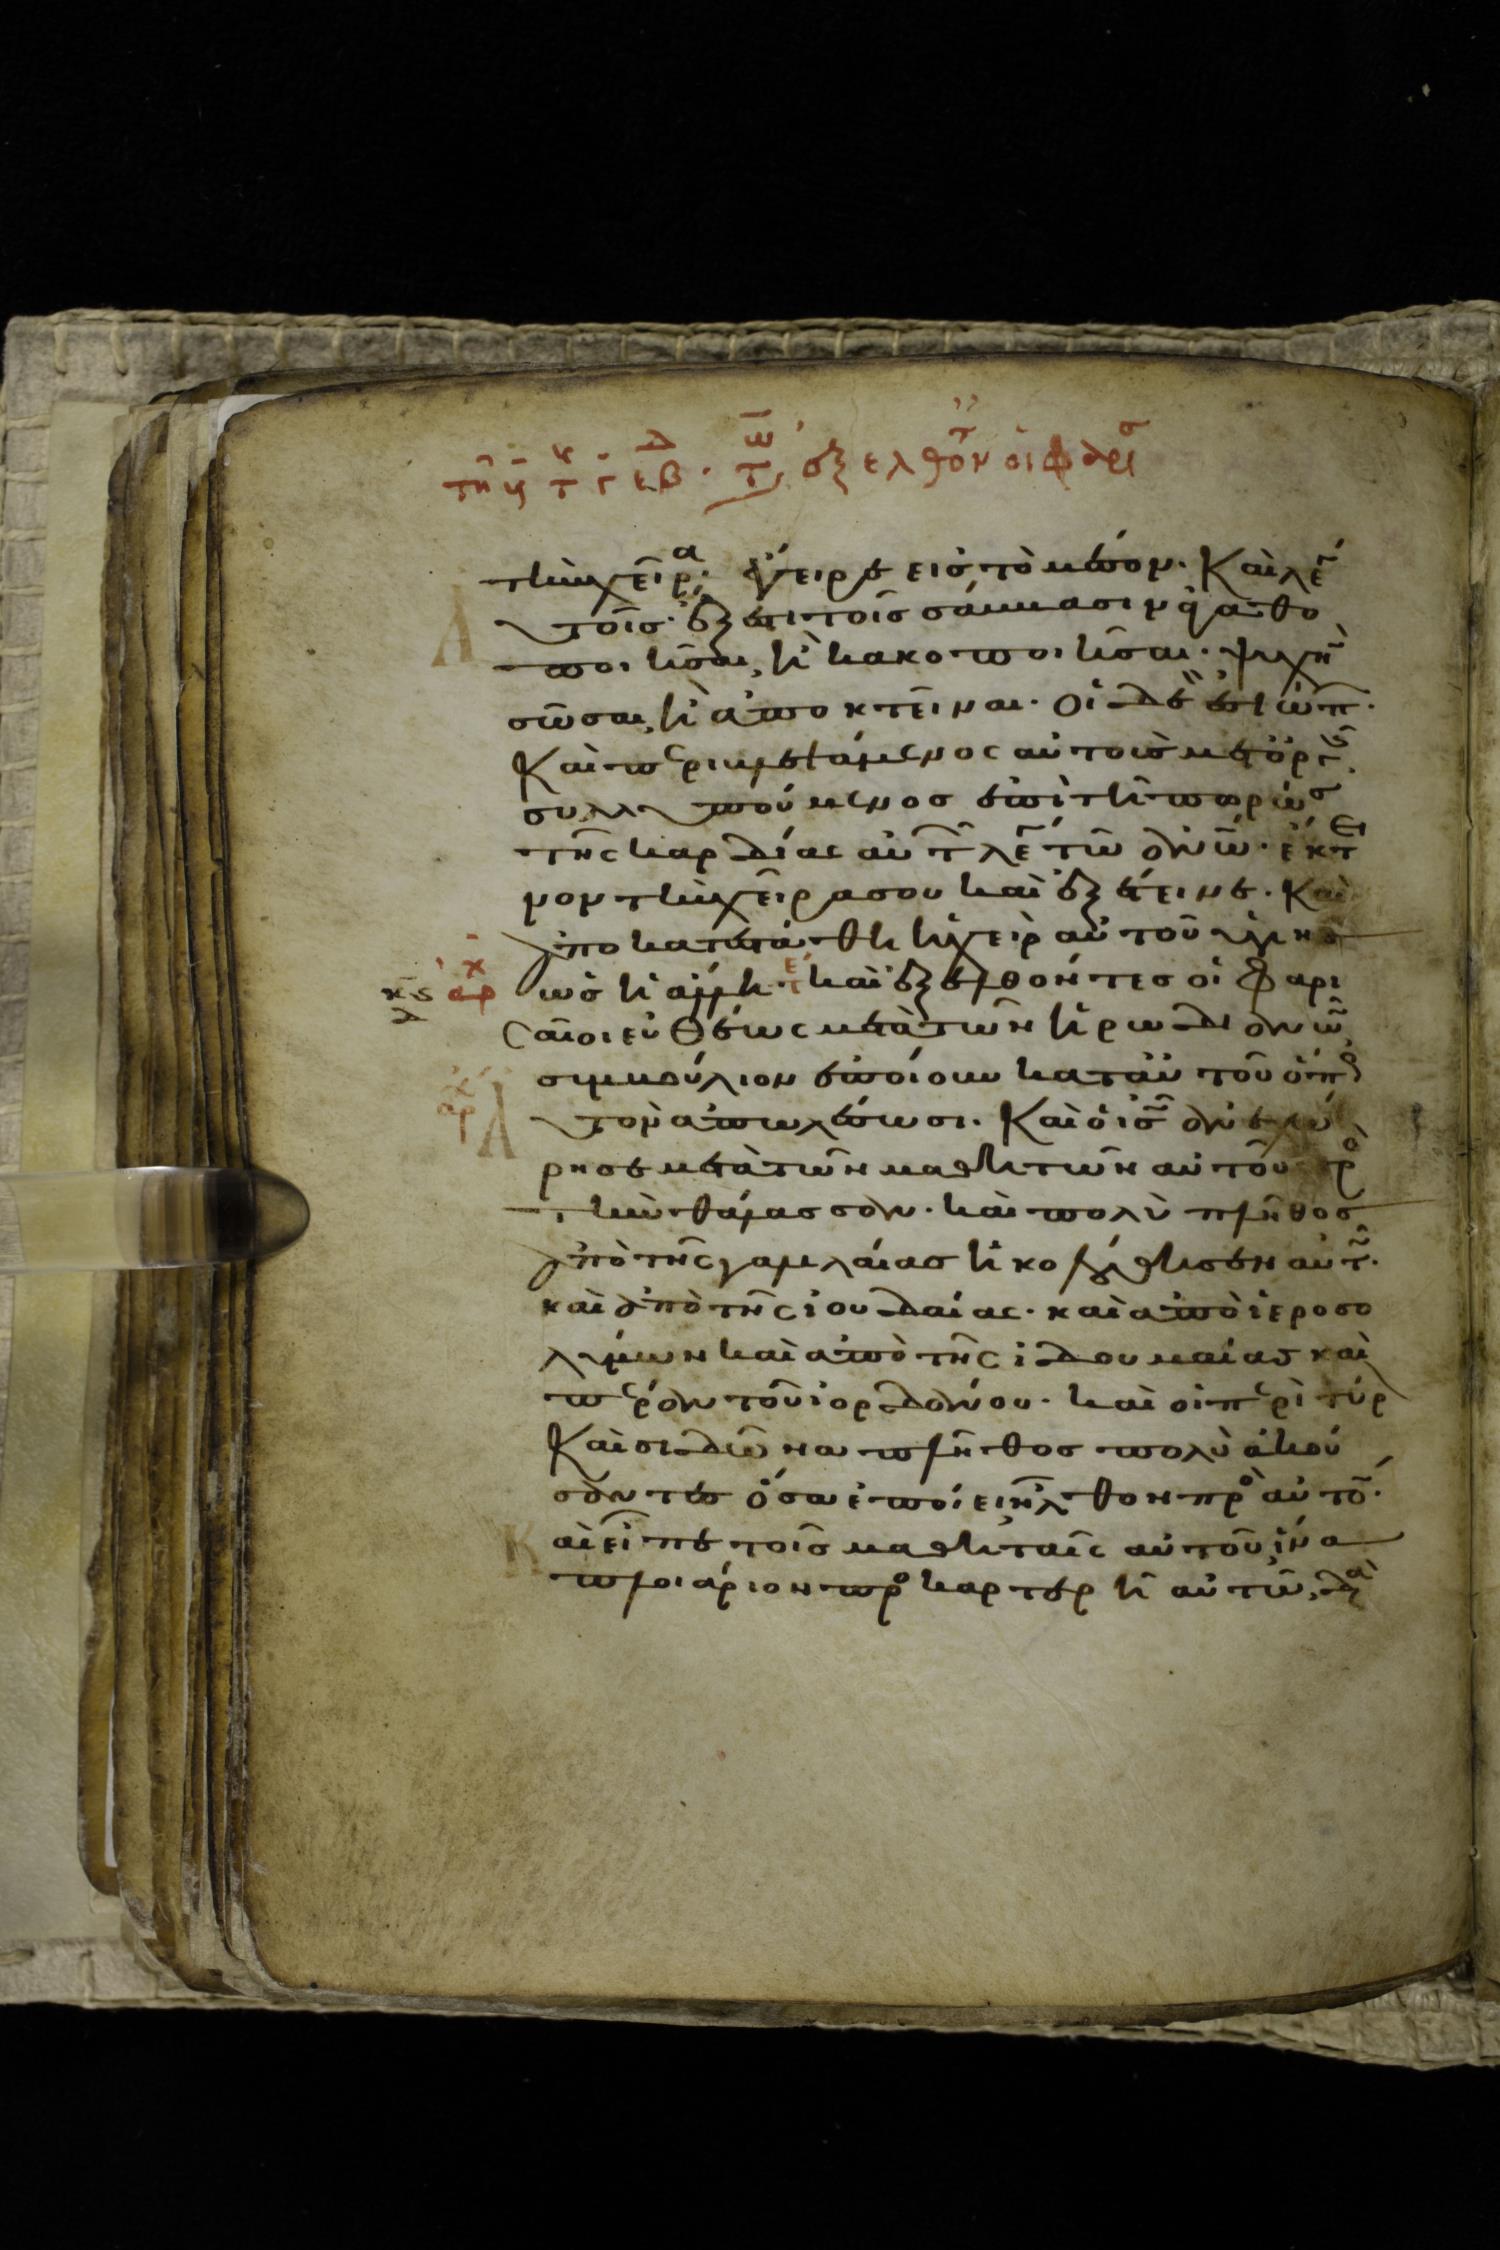 τὴν χεῖρα· ἔγειρε εἰς τὸ μέσον· Καὶ λέγει
αὐτοῖς· ἔξεστι τοῖς σάββασιν ἀγαθο
ποιῆσαι, ἢ κακοποιῆσαι· ψυχὴν
σῶσαι, ἢ ἀποκτεῖναι· οἱ δὲ ἐσιώπ·
Καὶ περιβλεψάμενος αὐτοὺς μετ' ὀργῆς
συλλυπούμενος ἐπὶ τῇ πωρώσ
τῆς καρδίας αὐτῶν λέγει τῷ ἀνω· ἔκτει
νον τὴν χεῖρα σου καὶ ἐξέτεινε· Καὶ
ἀποκατεστάθη ἡ χεὶρ αὐτοῦ ὑγιὴς
ὡς ἡ ἄλλη· καὶ ἐξελθόντες οἱ Φαρι
σαῖοι εὐθέως μετὰ τῶν ἡρωδιανῶν
συμβούλιον ἐποίουν κατ' αὐτοῦ ὅπως
αὐτὸν ἀπωλέσωσι· Καὶ ὁ ις ἀνεχώ
ρησε μετὰ τῶν μαθητῶν αὐτοῦ πρὸς
τὴν θάλασσαν· καὶ πολὺ πλῆθος
ἀπὸ τῆς γαλιλαίας ἠκολούθησεν αὐτῷ·
καὶ ἀπὸ τῆς ἰουδαίας· καὶ ἀπὸ ἱεροσο
λύμων καὶ ἀπὸ τῆς ἰδουμαίας καὶ
πέραν τοῦ ἰορδάνου· καὶ οἱ περὶ τύρ
Καὶ σιδῶνα πλῆθος πολὺ ἀκού
σαντες ὅσα ἐποίει ἦλθον πρὸς αὐτόν·
Καὶ εἶπε τοῖς μαθηταῖς αὐτοῦ ἵνα
πλοιάριον προσκαρτερῇ αὐτῷ, διὰ